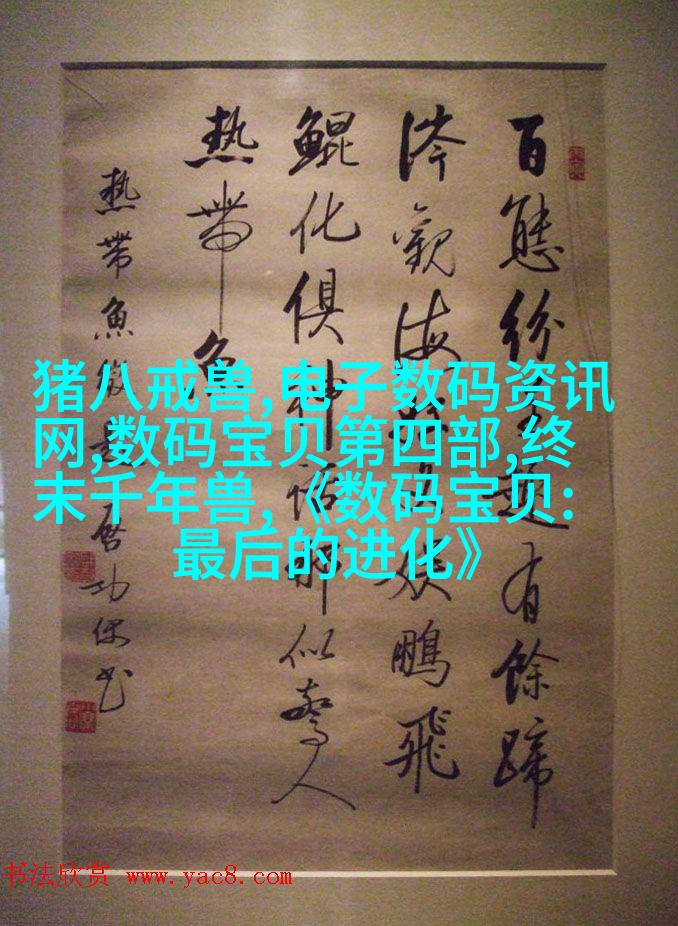 猪八戒兽,电子数码资讯
网,数码宝贝第四部,终
末千年兽,《数码宝贝:
最后的进化》
百態紛有餘蹄
涔觀海娱鵬飛
鯤化俱神話那似驚人
熱帶魚
熱帶魚啓功
书法欣赏 www.yac8.com